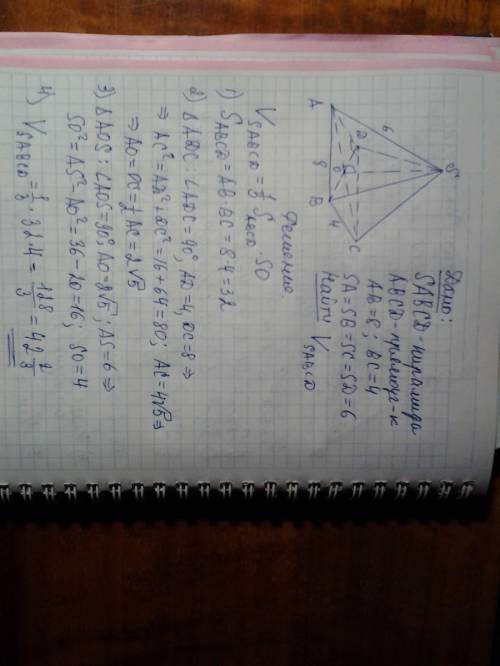 Дано:
SABCD-пирамида
ABCD-прямоуг-к
AB=8; BC=4
SA=SB=SC=SD=6
Найти V SABCD
S
6
A
D
O
8
B
4
C
Решение
V SABCD = 1/3 S ABCD · SO
1) S ABCD = AB·BC = 8·4 = 32
2) ΔADC: ∠ADC=90°, AD=4, DC=8 ⇒
⇒ AC² = AD²+DC² = 16+64=80; AC=4√5 ⇒
⇒ AO=OC=1/2 AC = 2√5
3) ΔAOS: ∠AOS=90°, AO=2√5; AS=6 ⇒
SO²=AS²-AO²=36-20=16; SO=4
4) V SABCD = 1/3 · 32·4 = 128/3 = 42 2/3